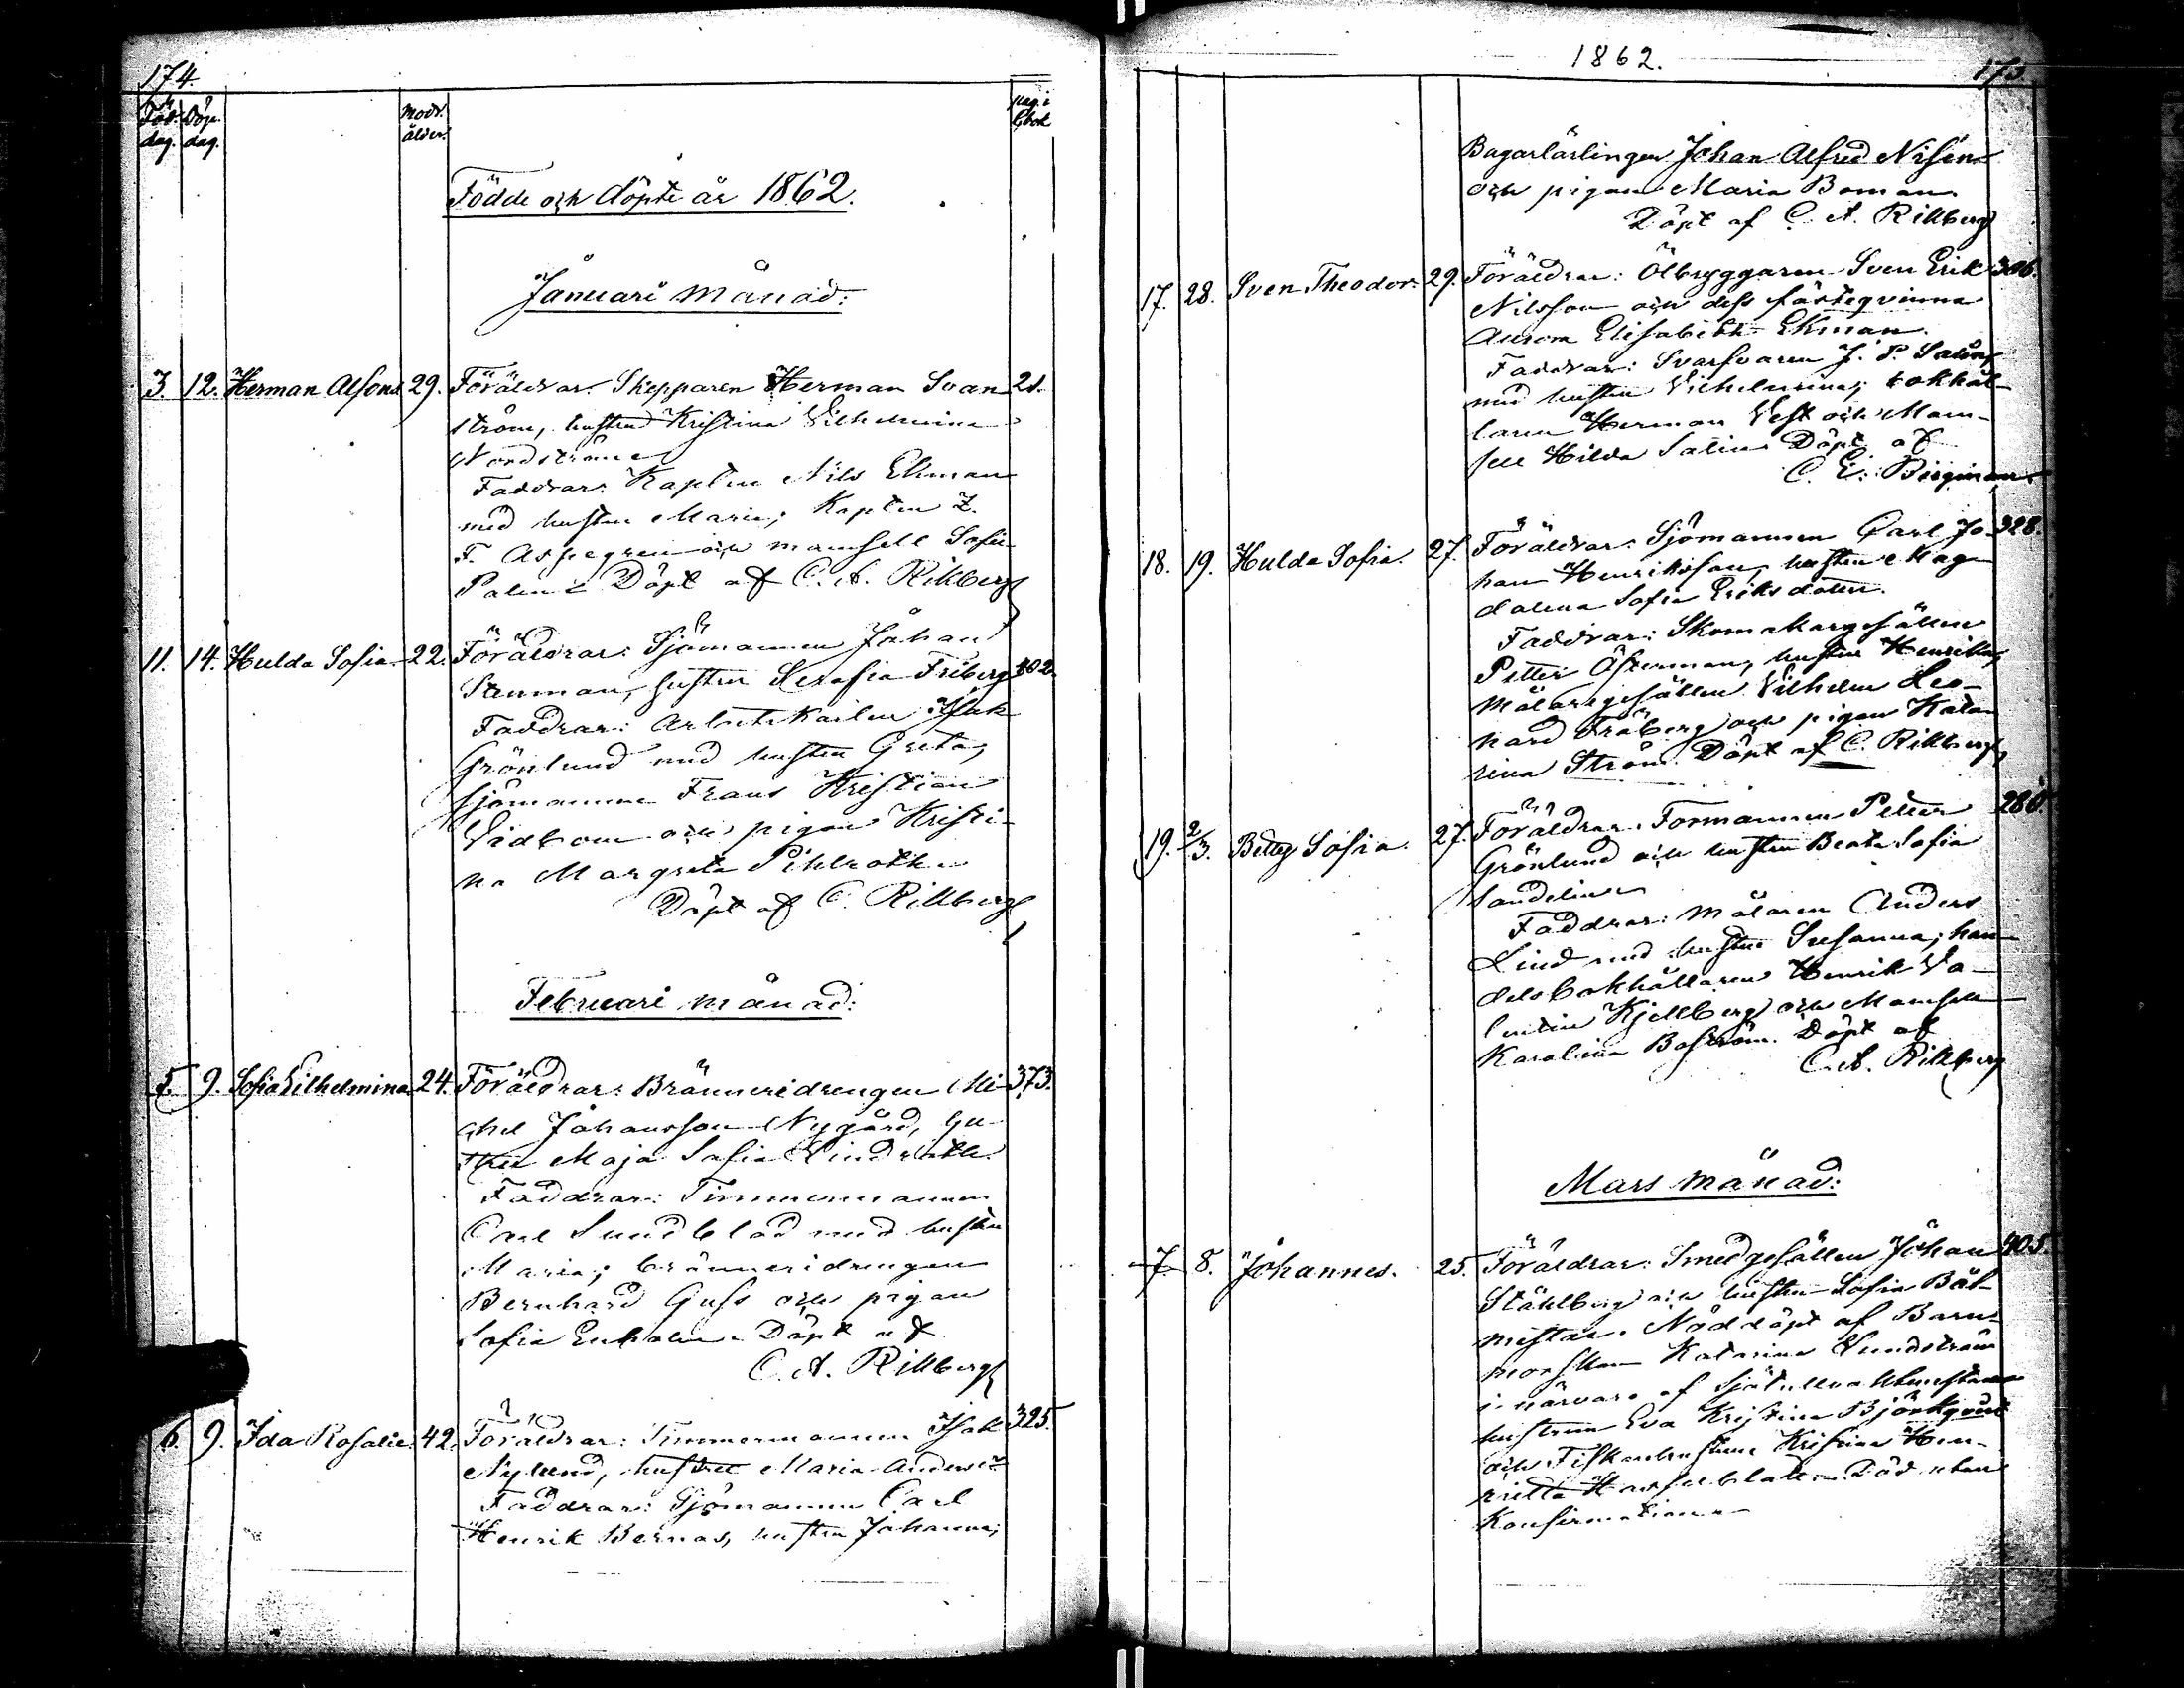 174.
Föd. dag. Döp. dag. Modr. ålder. pag. i Kbok
Födde och döpte år 1862.
Januari månad:
3. 12. Herman Alfons 29. Föräldrar: Skepparen Herman Svan- 21.
ström, hustrun Kristina Vilhelmina
Nordström
Faddrar: Kapten Nils Ekman
med hustru Maria; Kapten Z.
F. Aspegren och mamsell Sofie
Palén. Döpt af C. A. Rikberg
11. 14. Hulda Sofia 22. Föräldrar: Sjömannen Johan
Stenman, hustru Serafia Friberg 302.
Faddrar: Arbetskarlen Isak
Grönlund med hustru Greta,
sjömannen Frans Kristian
Vidbom och pigan Kristi-
na Margreta
Döpt af C. Rikberg
Februari månad:
5. 9. Sofia Vilhelmina 24. Föräldrar: Bränneridrengen Mi- 373.
chel Johansson Nygård, hu-
stru Maja Sofia
Faddrar: Timmermannen
Carl Sundblad med hustru
Maria; bränneridrengen
Bernhard Guss och pigan
Sofia Enholm. Döpt af
C. A. Rikberg
6. 9. Ida Rosalie. 42. Föräldrar: Timmermannen Isak 325.
Nylund, hustru Maria Andersdr
Faddrar: Sjömannen Carl
Henrik Bernas, hustru Johanna;
1862.
175.
Bagarlärlingen Johan Alfred Nisén
och pigan Maria Boman.
Döpt af C. A. Rikberg
17. 28. Sven Theodor. 29. Föräldrar: Ölbryggaren Sven Erik 306.
Nilsson och dess fästeqvinna
Aurora Elisabeth Ekman.
Faddrar: Svarfvaren J. P. Salin
med hustru Vilhelmina; bokhål-
laren Herman Vest och Mam-
sell Hilda Salin. Döpt af
C. E. Bergman.
18. 19. Hulda Sofia. 27. Föräldrar: Sjömannen Carl Jo- 328.
han Henriksson, hustru Mag-
dalena Sofia Eriksdotter.
Faddrar: Skomakargesällen
Petter Österman, hustru Henrika,
Målaregesällen Vilhelm Leo-
nard Fröberg och pigan Kata-
rina Ström. Döpt af C. Rikberg
19. 2/3. Betty Sofia. 27. Föräldrar: Formannen Petter 286.
Grönlund och hustru Beata Sofia
Sandelin
Faddrar: Målaren Anders
Lind med hustru Susanna; han-
delsbokhållaren Henrik Va-
lentin Kjellberg och Mamsell
Karolina Boström. Döpt af
C. A. Rikberg
Mars månad:
7. 8. Johannes. 25. Föräldrar: Smedgesällen Johan 405.
Ståhlberg och hustru Sofia Båt-
mästar. Nöddöpt af Barn-
morskan Katarina Sundström
i närvaro af
hustrun Eva Kristina Björkqvist
och Fiskarehustrun Kristina Hen-
rietta Död utan
Konfirmation.